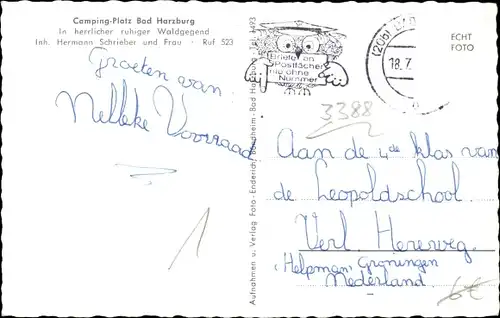 Camping-Platz Bad Harzburg
In herrlicher ruhiger Waldgegend
Inh. Hermann Schrieber und Frau · Ruf 523
Groeten van
Nelleke Voorraad
1
Aufnahmen u. Verlag Foto-Enderich, Bündheim-Bad Harzburg
Briefe an
Postfächer
nie ohne
Nummer
(20b) BAD
18.7.
ECHT
FOTO
3388
Aan de 4de klas van
de Leopoldschool.
Verl Hereweg.
Helpman, Groningen
Nederland
6€